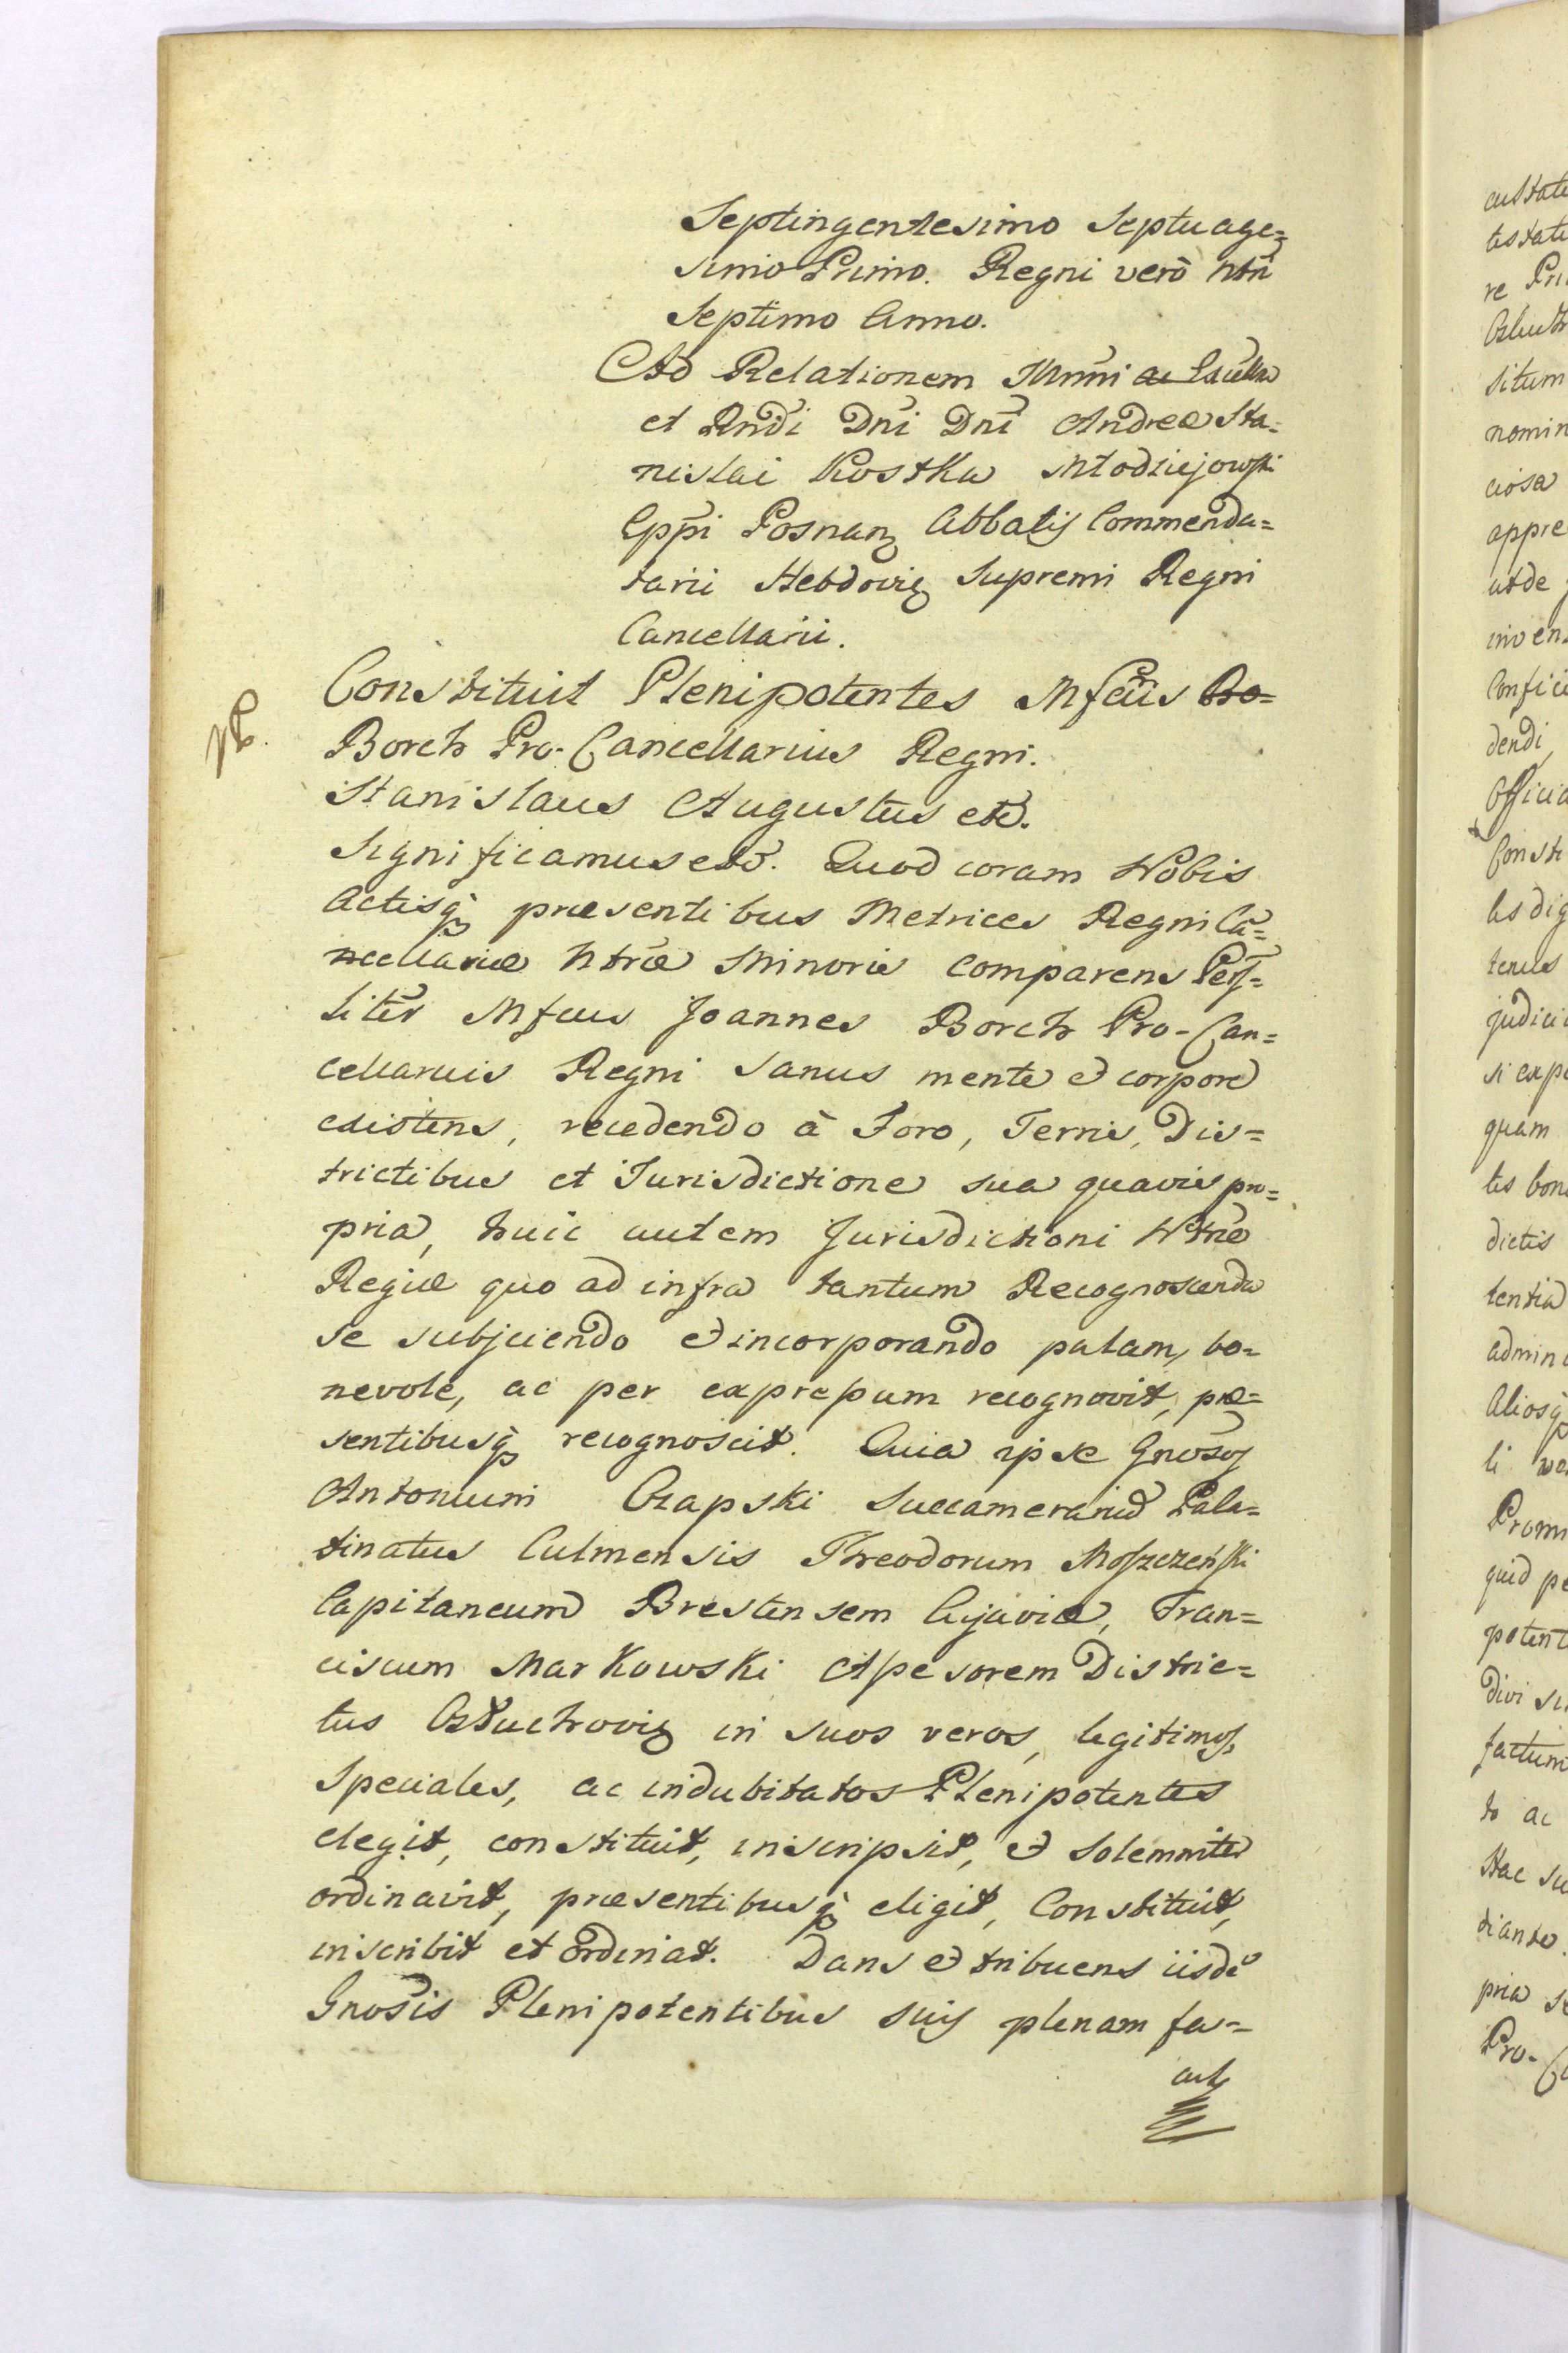 Septingentesimo Septuage=
simo Primo. Regni verò Ntri
Septimo Anno.
Ad Relationem Illmi ac Excllmi
et Rndi Dni Dni Andreæ Sta=
nislai Kostka Młodziejowski
Eppi Posnan Abbatis Commenda=
tarii Hebdovien Supremi Regni
Cancellarii.
Constituit Plenipotentes Mfcus Bo=
Borch Pro-Cancellarius Regni.
Stanislaus Augustus etc.
Significamus etc. Quod coram Nobis
Actisq præsentibus Metrices Regni Ca=
ncellariæ Ntræ Minoris comparens Pers=
liter Mfcus Joannes Borch Pro-Can=
cellarius Regni sanus mente et corpore
existens, recedendo à Foro, Terris, Dis=
trictibus et Jurisdictione sua quavis pro=
pria, huic autem Jurisdictioni Ntræ
Regiæ quo ad infra tantum Recognoscenda
se subjiciendo et incorporando palam, be=
nevole, ac per expressum recognovit, præ=
sentibusq recognoscit. Quia ipse Gnosos
Antonium Czapski Succamerarium Pala=
tinatus Culmensis Theodorum Moszczeński
Capitaneum Brestensem Cujaviæ, Fran=
ciscum Markowski Assesorem Distric=
tus Człuchovien in suos veros, legitimos,
Speciales, ac indubitatos Plenipotentes
elegit, constituit, inscripsit, et Solemniter
ordinavit, præsentibusq eligit, Constituit,
inscribit et ordinat. Dans et tribuens iisde
Gnosis Plenipotentibus suis plenam fa=
cult
cultate
testate
situm
nomin
ciosa
appre
invens
Confici
dendi,
Officia
Consti
les dig
tenus
judici
si expe
quam
tes bon
dictis
tentia
admin
Aliosq
Promi
quid pe
potent
divi si
factum
to ac
Hac su
tiante.
pria s
Pro-C